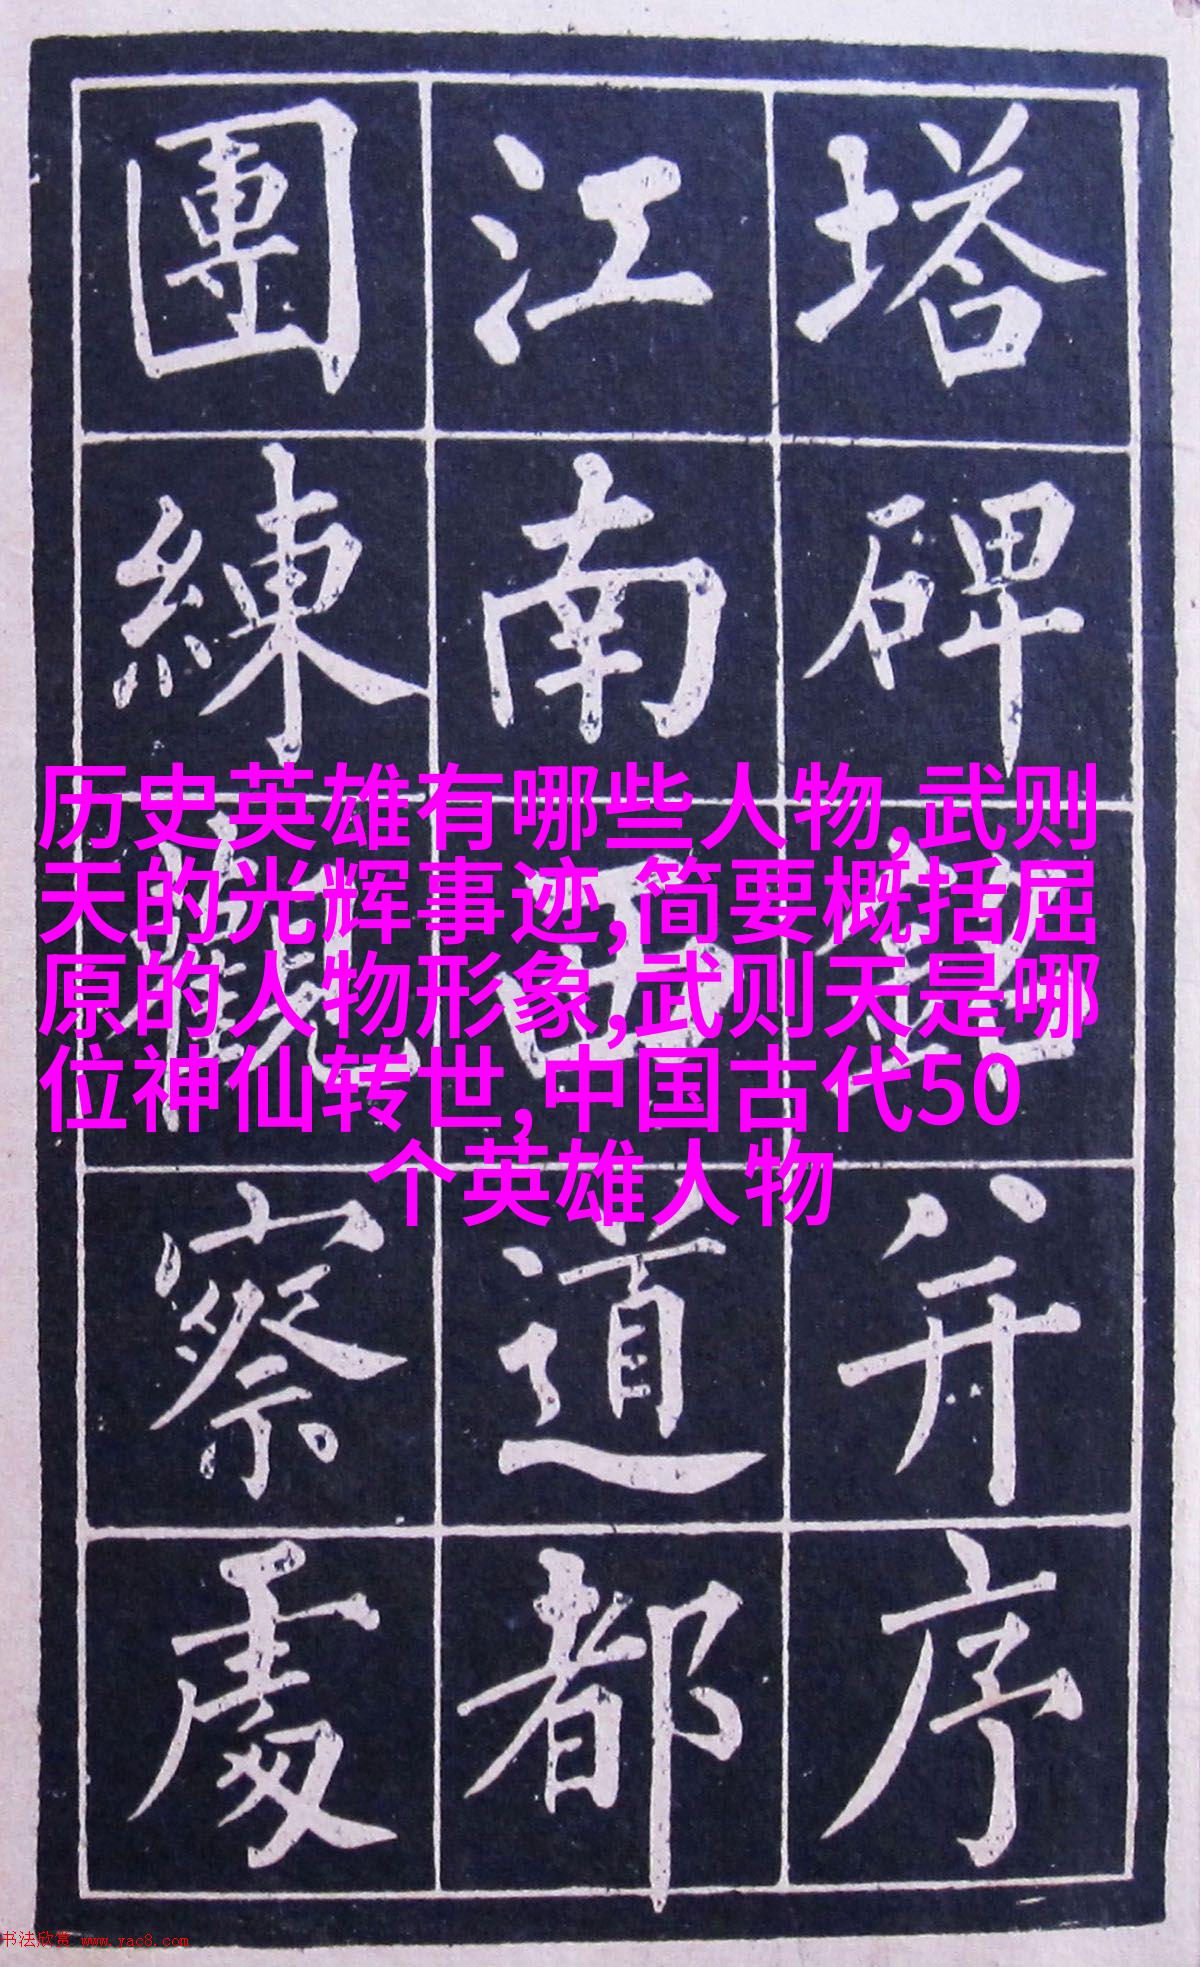 塔碑銘并序
江南西道都
團練觀察處
历史英雄有哪些人物,武则
天的光辉事迹,简要概括屈
原的人物形象,武则天是哪
位神仙转世,中国古代50
个英雄人物
书法欣赏 www.yac8.com